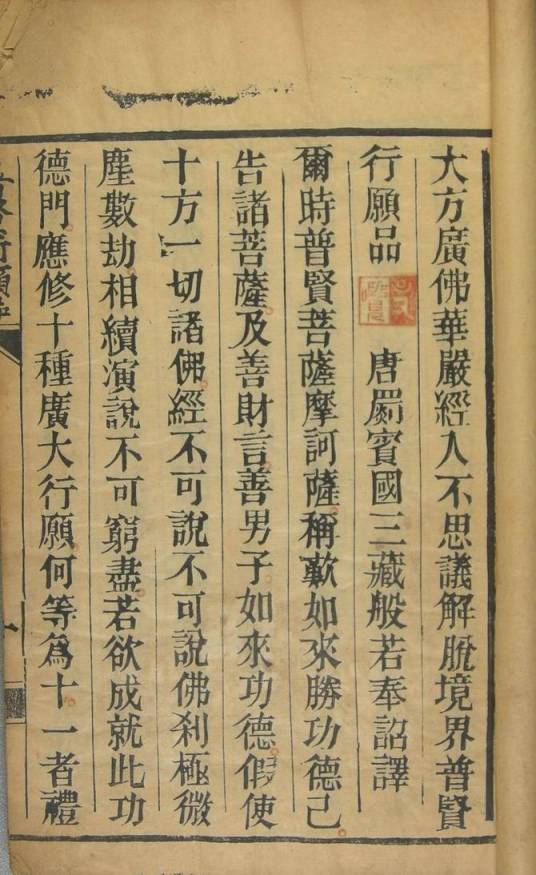 大方廣佛華嚴經入不思議解脫境界普賢
行願品 唐罽賓國三藏般若奉詔譯
爾時普賢菩薩摩訶薩稱歎如來勝功德已
告諸菩薩及善財言善男子如來功德假使
十方一切諸佛經不可說不可說佛剎極微
塵數劫相續演說不可窮盡若欲成就此功
德門應修十種廣大行願何等爲十一者禮